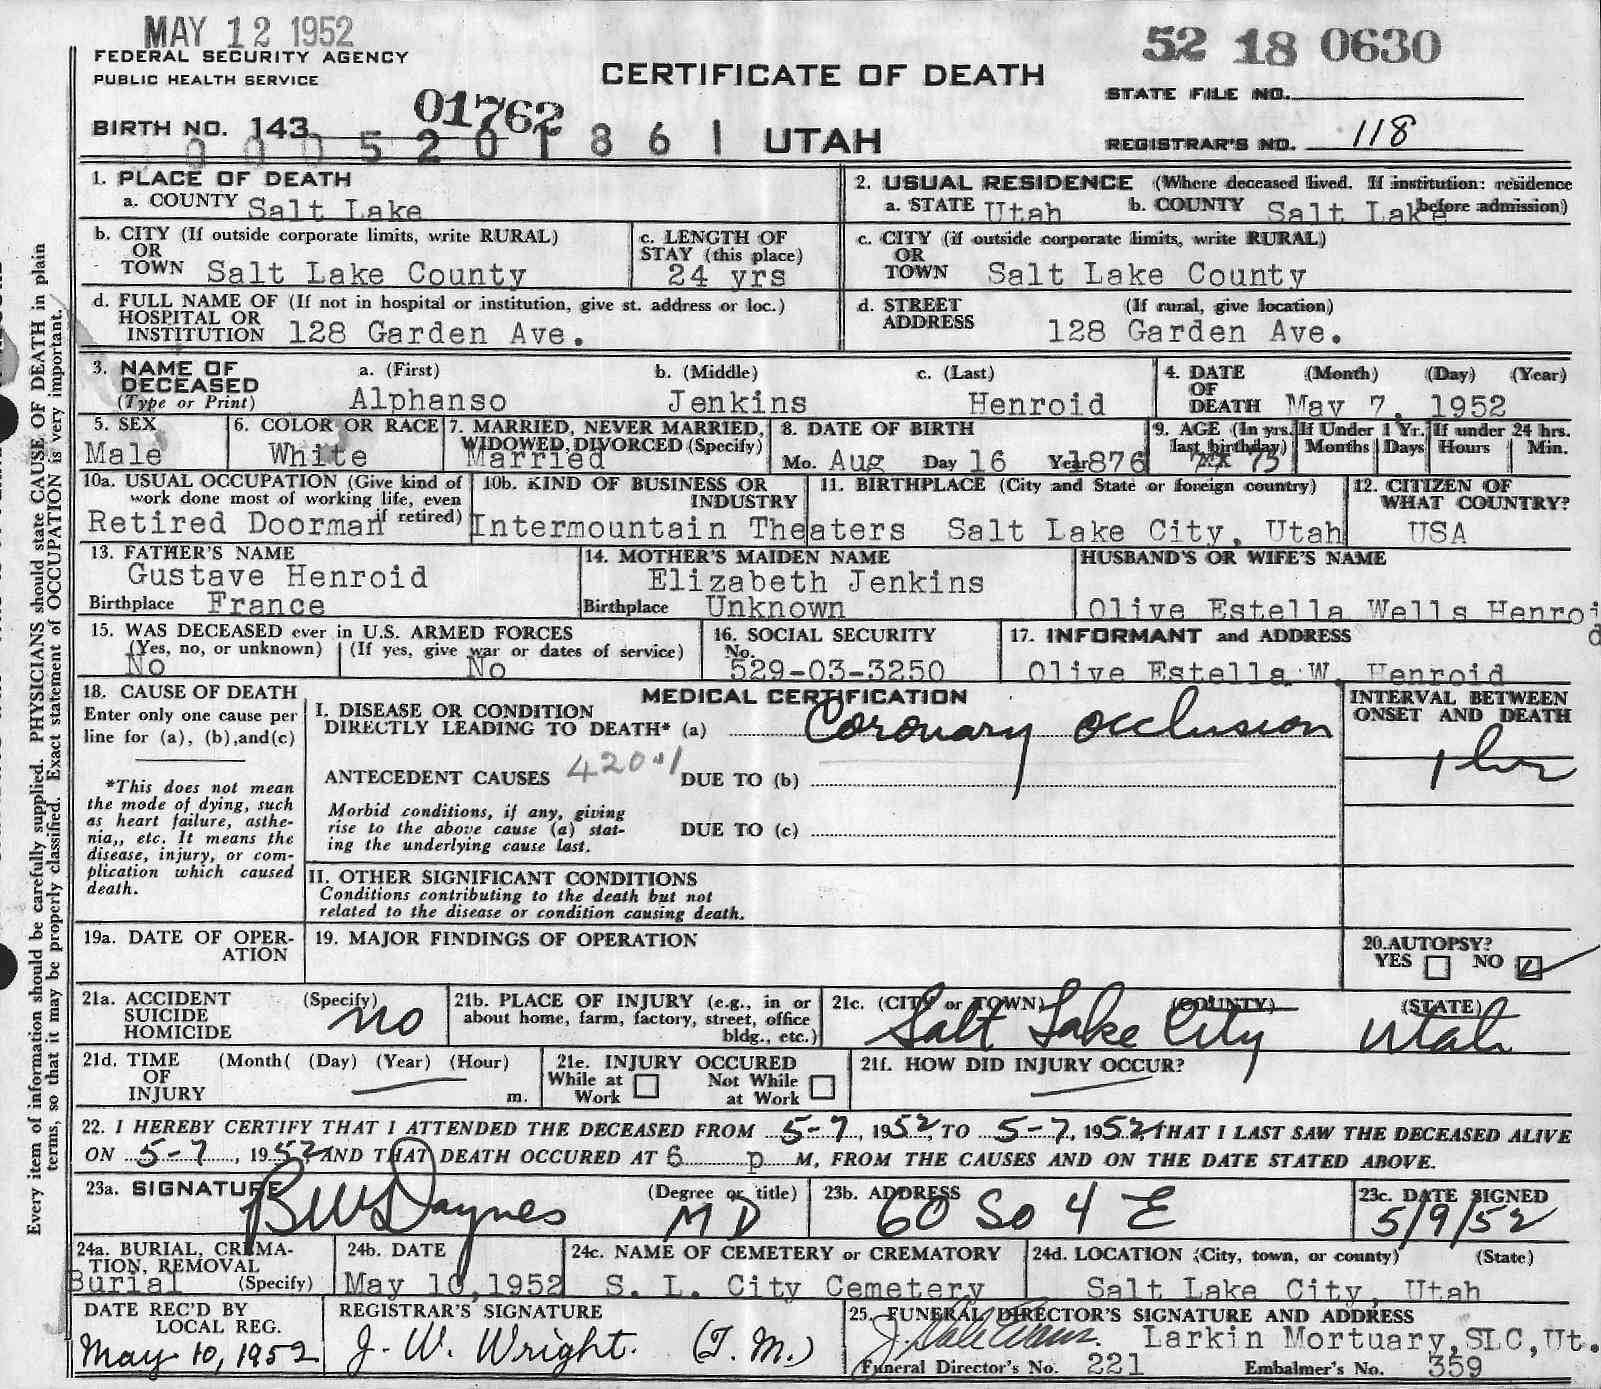 MAY 12 1952
FEDERAL SECURITY AGENCY
PUBLIC HEALTH SERVICE
CERTIFICATE OF DEATH
52 18 0630
STATE FILE NO.
01762
BIRTH NO. 143
0 0 0 5 2 0 1 8 6 1 UTAH
REGISTRAR'S NO. 118
1. PLACE OF DEATH
a. COUNTY Salt Lake
2. USUAL RESIDENCE (Where deceased lived. If institution: residence before admission)
a. STATE Utah b. COUNTY Salt Lake
b. CITY (If outside corporate limits, write RURAL)
OR
TOWN Salt Lake County
c. LENGTH OF
STAY (this place)
24 yrs
c. CITY (if outside corporate limits, write RURAL)
OR
TOWN Salt Lake County
d. FULL NAME OF (If not in hospital or institution, give st. address or loc.)
HOSPITAL OR
INSTITUTION 128 Garden Ave.
d. STREET (If rural, give location)
ADDRESS 128 Garden Ave.
3. NAME OF
DECEASED
(Type or Print)
a. (First) b. (Middle) c. (Last)
Alphanso Jenkins Henroid
4. DATE (Month) (Day) (Year)
OF
DEATH May 7, 1952
5. SEX
Male
6. COLOR OR RACE
White
7. MARRIED, NEVER MARRIED,
WIDOWED, DIVORCED (Specify)
Married
8. DATE OF BIRTH
Mo. Aug Day 16 Year 1876
9. AGE (In yrs. last birthday) 75
If Under 1 Yr. Months Days
If under 24 hrs. Hours Min.
10a. USUAL OCCUPATION (Give kind of
work done most of working life, even
if retired)
Retired Doorman
10b. KIND OF BUSINESS OR
INDUSTRY
Intermountain Theaters
11. BIRTHPLACE (City and State or foreign country)
Salt Lake City, Utah
12. CITIZEN OF
WHAT COUNTRY?
USA
13. FATHER'S NAME
Gustave Henroid
Birthplace France
14. MOTHER'S MAIDEN NAME
Elizabeth Jenkins
Birthplace Unknown
HUSBAND'S OR WIFE'S NAME
Olive Estella Wells Henroi
d
15. WAS DECEASED ever in U.S. ARMED FORCES
(Yes, no, or unknown) (If yes, give war or dates of service)
No No
16. SOCIAL SECURITY
No.
529-03-3250
17. INFORMANT and ADDRESS
Olive Estella W. Henroid
18. CAUSE OF DEATH
Enter only one cause per
line for (a), (b),and(c)
*This does not mean
the mode of dying, such
as heart failure, asthe-
nia,, etc. It means the
disease, injury, or com-
plication which caused
death.
MEDICAL CERTIFICATION
I. DISEASE OR CONDITION
DIRECTLY LEADING TO DEATH* (a) Coronary occlusion
ANTECEDENT CAUSES 420.1 DUE TO (b)
Morbid conditions, if any, giving
rise to the above cause (a) stat-
ing the underlying cause last.
DUE TO (c)
INTERVAL BETWEEN
ONSET AND DEATH
1 hr
II. OTHER SIGNIFICANT CONDITIONS
Conditions contributing to the death but not
related to the disease or condition causing death.
19a. DATE OF OPER-
ATION
19. MAJOR FINDINGS OF OPERATION
20. AUTOPSY?
YES NO
21a. ACCIDENT (Specify)
SUICIDE
HOMICIDE no
21b. PLACE OF INJURY (e.g., in or
about home, farm, factory, street, office
bldg., etc.)
21c. (CITY or TOWN) (COUNTY) (STATE)
Salt Lake City Utah
21d. TIME (Month( (Day) (Year) (Hour)
OF
INJURY m.
21e. INJURY OCCURED
While at Work Not While at Work
21f. HOW DID INJURY OCCUR?
22. I HEREBY CERTIFY THAT I ATTENDED THE DECEASED FROM 5-7, 1952, TO 5-7, 1952, THAT I LAST SAW THE DECEASED ALIVE
ON 5-7, 1952 AND THAT DEATH OCCURED AT 6 p M, FROM THE CAUSES AND ON THE DATE STATED ABOVE.
23a. SIGNATURE (Degree or title)
BW Daynes MD
23b. ADDRESS
60 So 4 E
23c. DATE SIGNED
5/9/52
24a. BURIAL, CREMA-
TION, REMOVAL
Burial (Specify)
24b. DATE
May 10, 1952
24c. NAME OF CEMETERY or CREMATORY
S. L. City Cemetery
24d. LOCATION (City, town, or county) (State)
Salt Lake City, Utah
DATE REC'D BY
LOCAL REG.
May 10, 1952
REGISTRAR'S SIGNATURE
J. W. Wright. (T.M.)
25. FUNERAL DIRECTOR'S SIGNATURE AND ADDRESS
J. Dale Evans. Larkin Mortuary, SLC, Ut.
Funeral Director's No. 221 Embalmer's No. 359
Every item of information should be carefully supplied. PHYSICIANS should state CAUSE OF DEATH in plain
terms, so that it may be properly classified. Exact statement of OCCUPATION is very important.